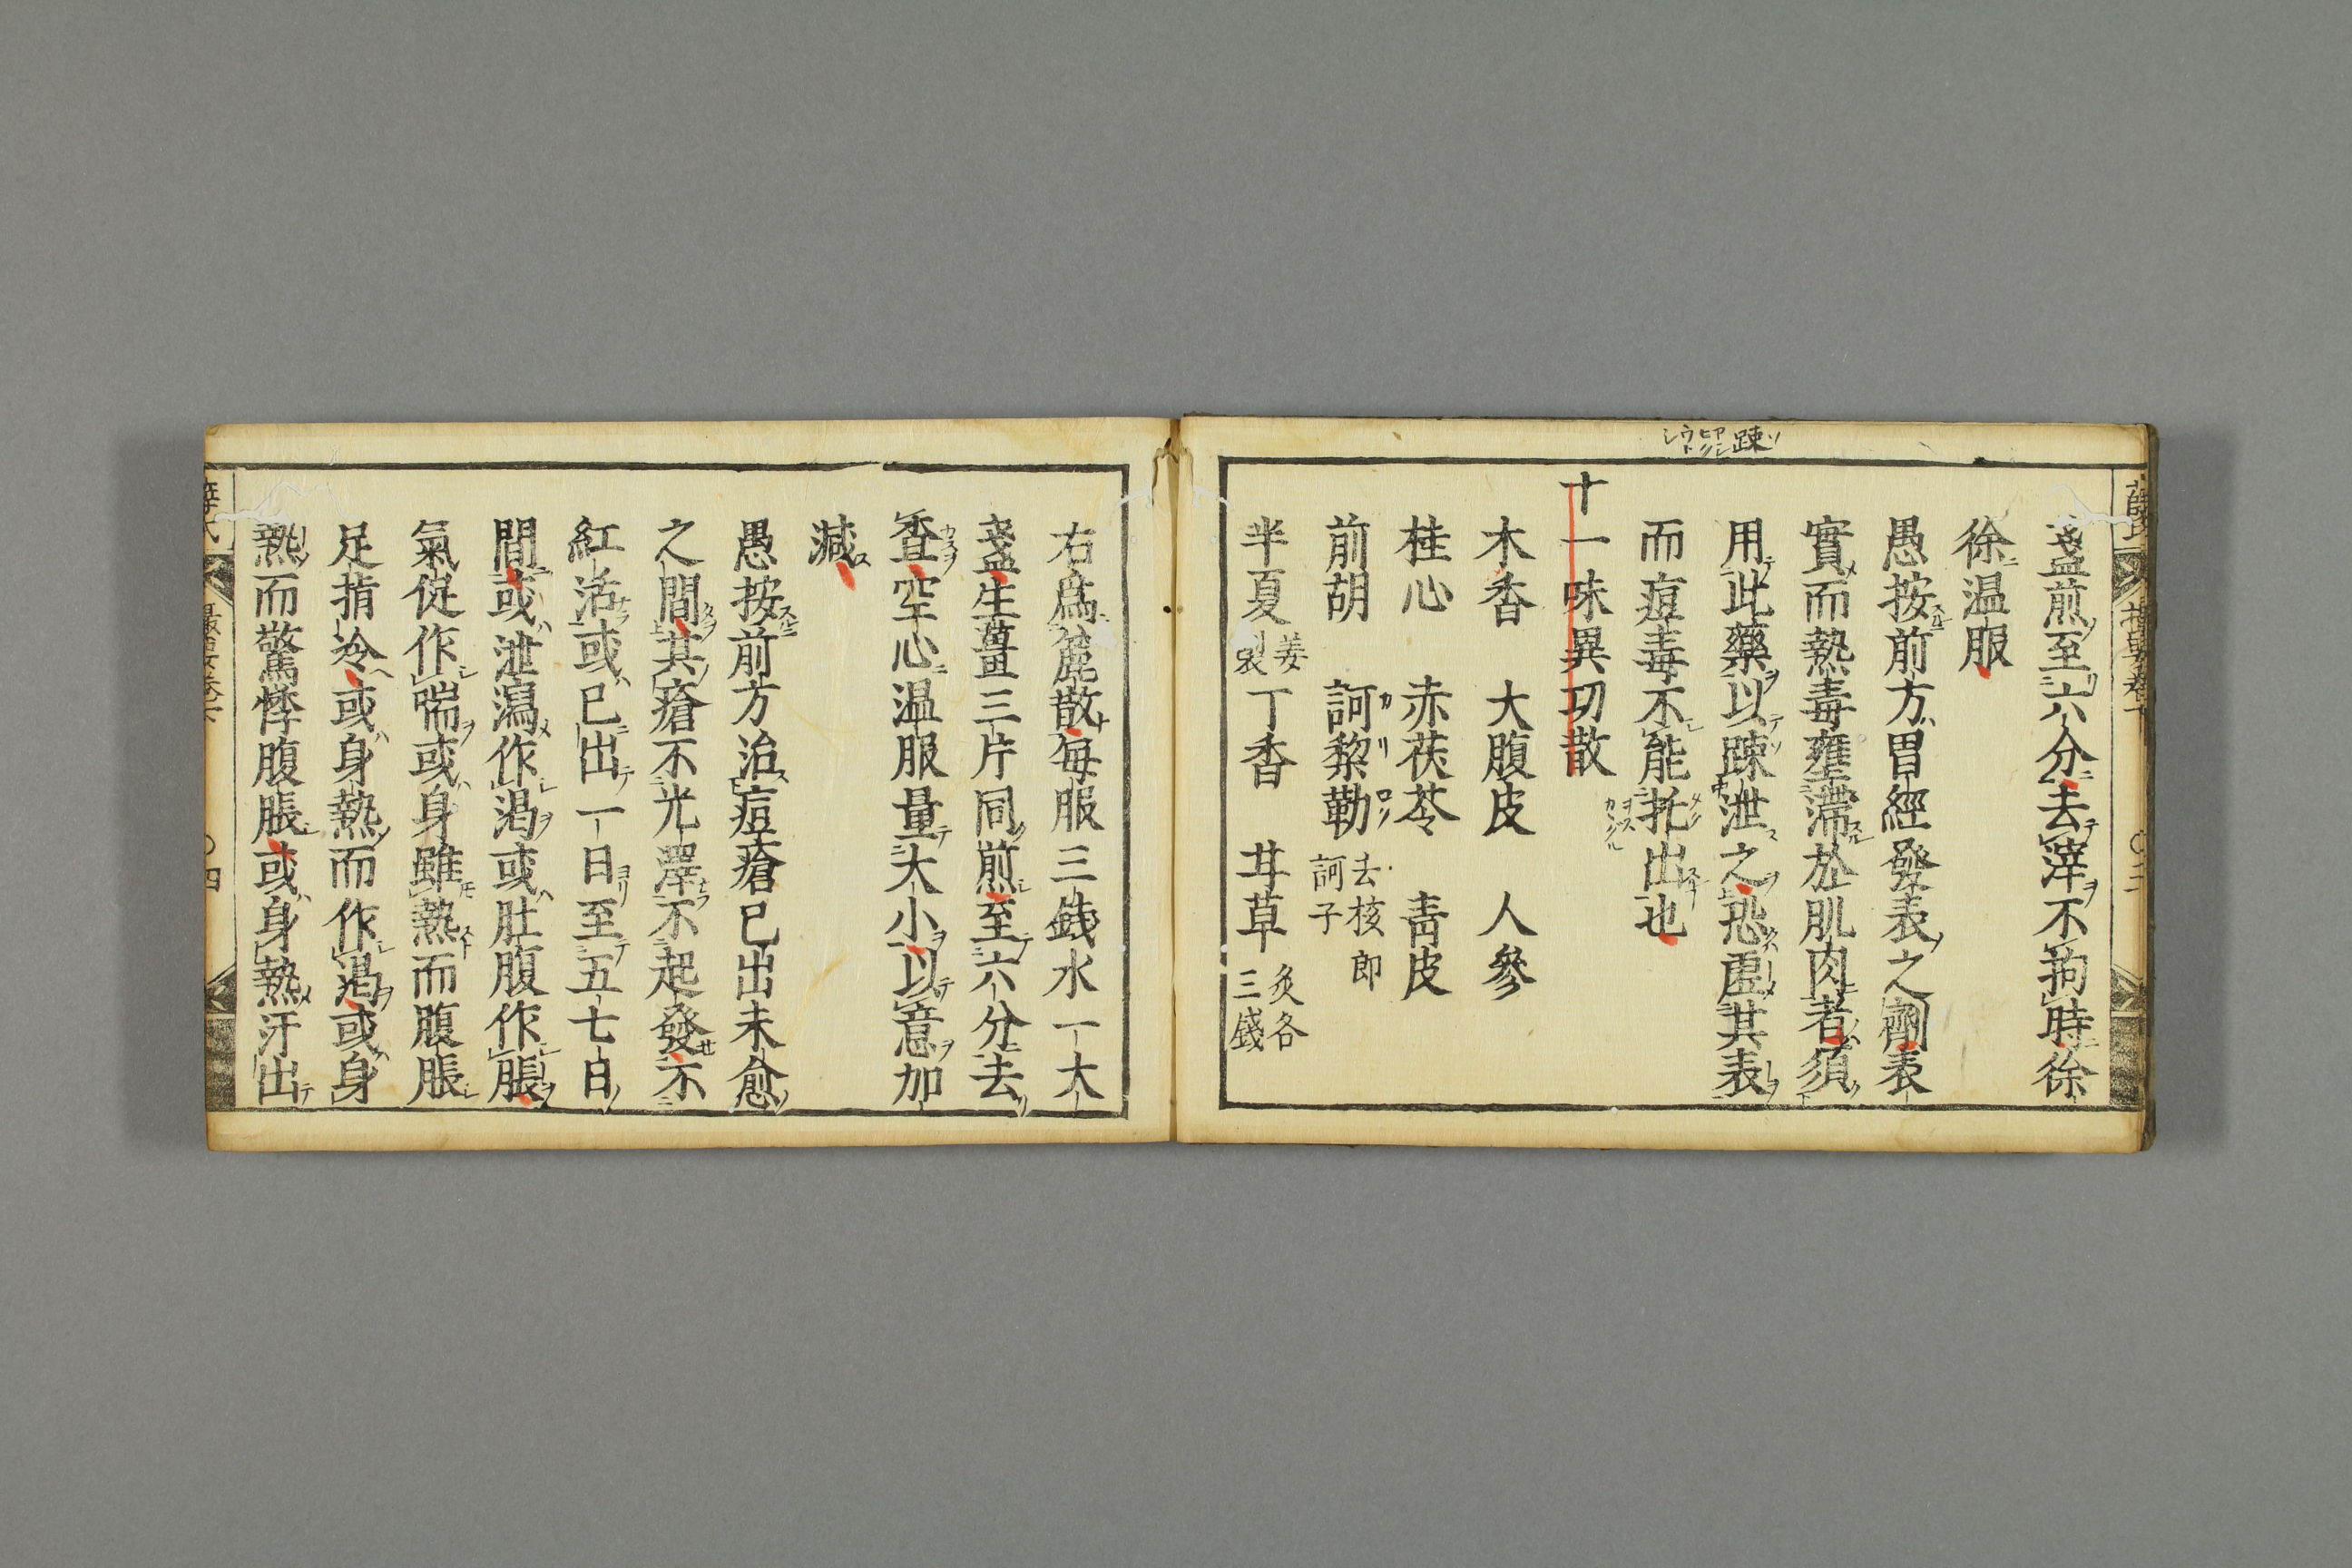 盞煎至六分去滓不拘時徐
徐温服
愚按前方冒經發表之劑表
實而熱毒壅滯於肌肉者須
用此藥以踈泄之恐虛其表
而痘毒不能托出也
十一味異功散
木香 大腹皮 人參
桂心 赤茯苓 青皮
前胡 訶黎勒 去核即訶子
半夏 姜製 丁香 甘草 炙各三錢
右爲麄散每服三錢水一大
盞生薑三片同煎至六分去
查空心温服量大小以意加
減
愚按前方治痘瘡已出未愈
之間其瘡不光澤不起發不
紅活或已出一日至五七日
間或泄瀉作渴或肚腹作脹
氣促作喘或身雖熱而腹脹
足指冷或身熱而作渴或身
熱而驚悸腹脹或身熱汗出
四